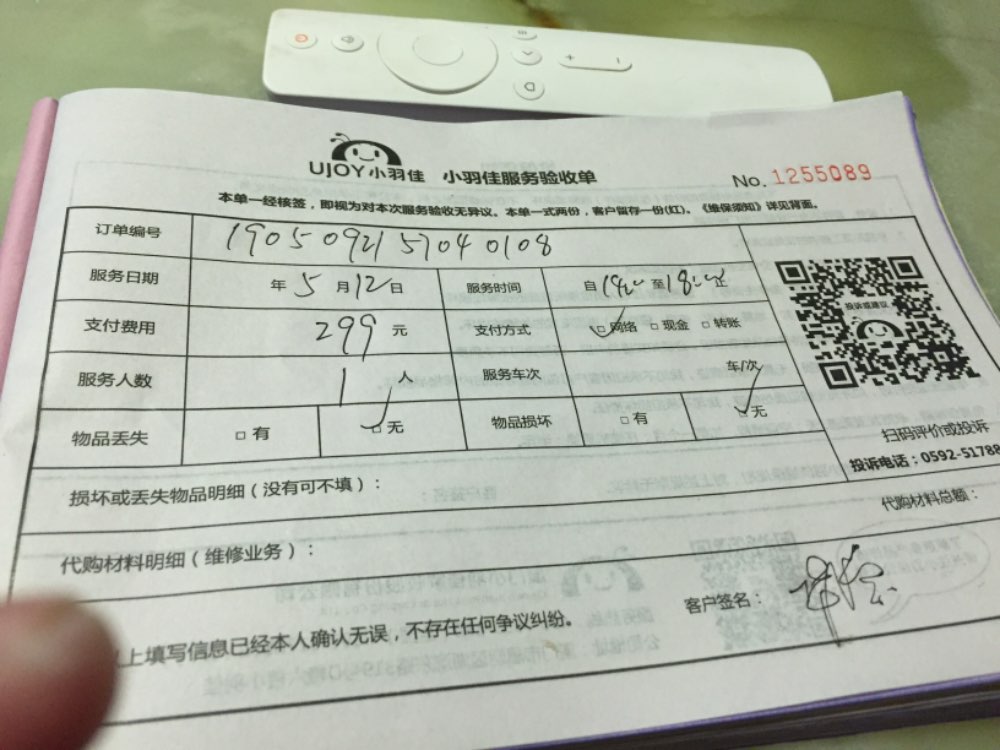 UJOY小羽佳 小羽佳服务验收单 No. 1255089
本单一经核签，即视为对本次服务验收无异议。本单一式两份，客户留存一份(红)。《维保须知》详见背面。
订单编号 1905092157040108
服务日期 年 5 月 12 日 服务时间 自 至 18:00 止
支付费用 299 元 支付方式 网络 现金 转账
服务人数 1 人 服务车次 车/次
物品丢失 有 无 物品损坏 有 无
投诉或建议
扫码评价或投诉
投诉电话：0592-51788
损坏或丢失物品明细（没有可不填）：
代购材料明细（维修业务）： 代购材料总额：
上填写信息已经本人确认无误，不存在任何争议纠纷。 客户签名：